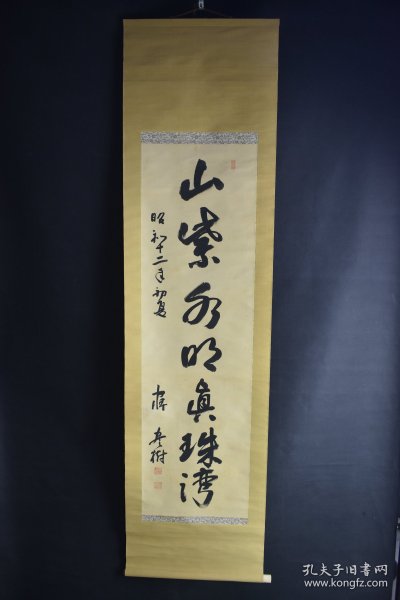 山紫水明眞珠湾
昭和十二年初夏
樹
孔夫子旧书网
www.kongfz.com